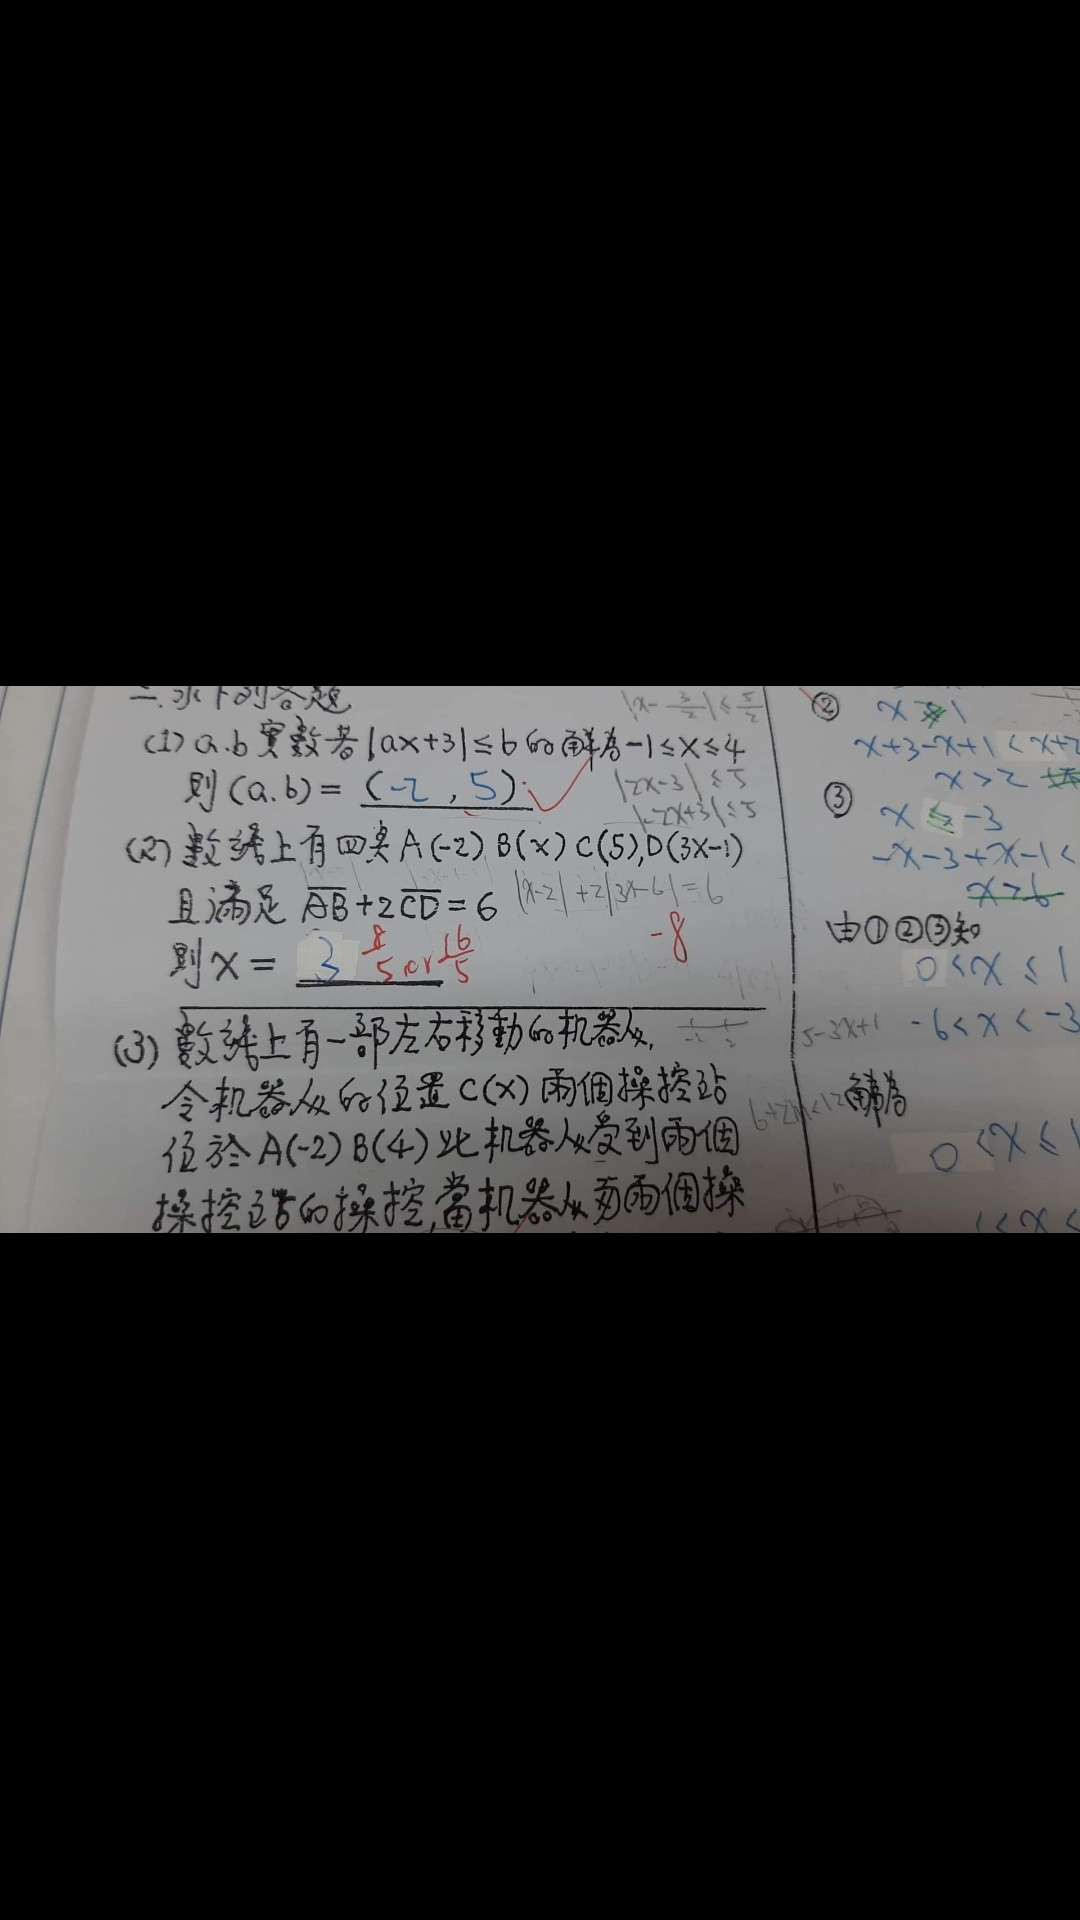 二.求下列各題
|x-3/2|≤5/2
(1) a.b 實數若|ax+3|≤b的解為-1≤x≤4
|2x-3|≤5
則(a.b)= (-2,5)
|-2x+3|≤5
(2) 數線上有四點A(-2) B(x) C(5),D(3x-1)
且滿足 AB+2CD=6 |x-2|+2|3x-6|=6
則x= 3 8/5 or 16/5 -8
(3) 數線上有一部左右移動的机器人,
令机器人的位置C(x)兩個操控站
位於A(-2) B(4)此机器人受到兩個
操控站的操控,當机器人與兩個操
②
x≥1
x+3-x+1<x+2
x>2
③ x≤-3
-x-3+x-1<
x>-6
由①②③知
0<x≤1
5-3x+1 -6<x<-3
解為
0<x≤1